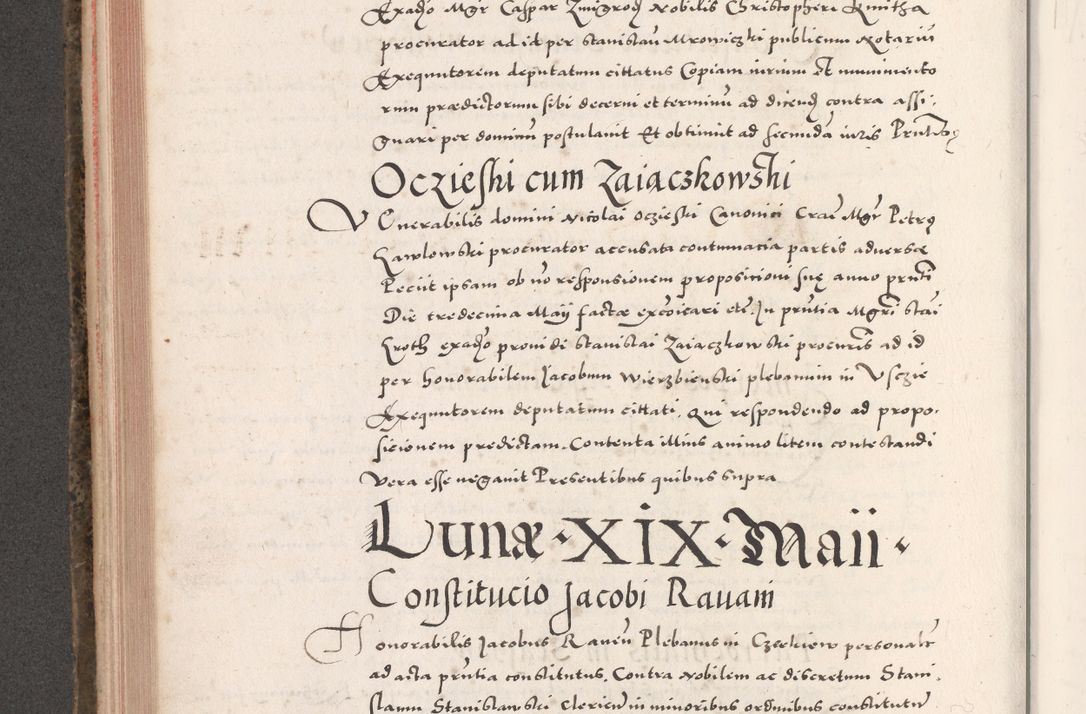 Exadvo Mgr Caspar Zmigrod Nobilis Christopheri Kmitha
procurator ad id per Stanislau Mrowiczki publicum Notariu
Exequutorem deputatum cittatus Copiam iurium Et munimento
rum prædictorum sibi decerni et terminu ad dicend contra assi-
gnari per dominu postulavit Et obtinuit ad secunda iuris
Oczieski cum Zaiaczkowski
Venerabilis domini Nicolai Oczieski Canonici Crac Mgr Petrg
procurator accusata contumacia partis adversæ
Peciit ipsam ob no responsionem proposicioni suę anno prnti
Die tredecima Maij factæ excoicari etc. In prntia Mgri Stai
Kroth providi Stanislai Zaiaczkowski procuris ad id
per honorabilem Jacobum Wierzbienski plebanum in Vsczie
Exequutorem deputatum cittati. Qui respondendo ad propo-
sicionem predictam. Contenta illius animo litem contestandi
Vera esse negavit Presentibus quibus supra
Lunæ · XIX · Maii ·
Constitucio Jacobi Ravani
Honorabilis Jacobus Raven Plebanus in personalr
ad acta prntia constitutus. Contra Nobilem ac discretum Stani-
slaum Stanislawski Clericum in minoribus ordinibus constitutu